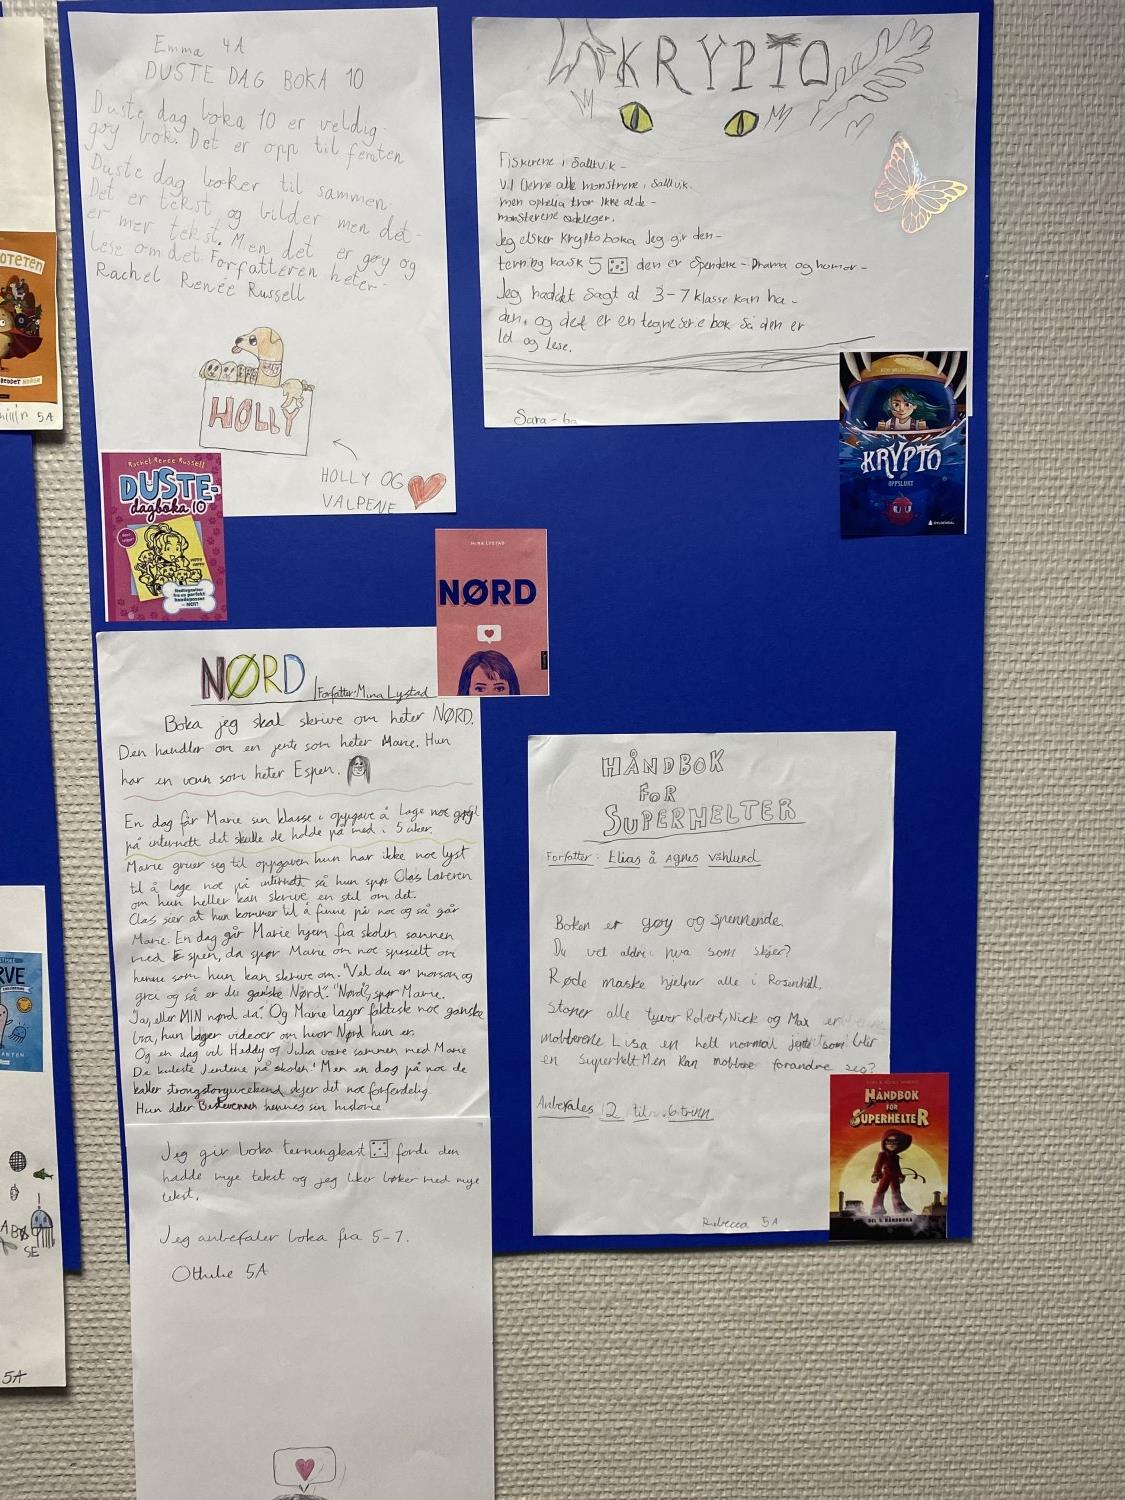 Emma 4A
DUSTE DAG BOKA 10
Duste dag boka 10 er veldig
gøy bok. Det er opp til femten
Duste dag bøker til sammen.
Det er tekst og bilder men det
er mer tekst. Men det er gøy og
lese om det. Forfatteren heter
Rachel Renée Russell
HOLLY
HOLLY OG
VALPENE
Rachel Renée Russell
DUSTE-
dagboka 10
KRYPTO
Fiskerene i Saltvik -
vil fjerne alle monstrene i Saltvik.
men ophelia tror ikke at de -
monsterene ødeleger.
Jeg elsker Krypto boka Jeg gir den -
terning kask 5 den er Spendene - Drama og humor -
Jeg haddet sagt at 3-7 klasse kan ha -
den, og det er en tegneserie bok så den er
let og lese.
Sara - 6a
KRYPTO
OPPSLUKT
GYLDENDAL
MINA LYSTAD
NØRD
NØRD
Forfatter: Mina Lystad
Boka jeg skal skrive om heter NØRD.
Den handler om en jente som heter Marie. Hun
har en venn som heter Espen.
En dag får Marie sin klasse i oppgave å lage noe gøyt
på internett det skulle de holde på med i 5 uker.
Marie gruer seg til oppgaven hun har ikke noe lyst
til å lage noe på internett så hun spør Olas læreren
om hun heller kan skrive en stil om det.
Olas sier at hun kommer til å finne på noe og så går
Marie. En dag går Marie hjem fra skolen sammen
med Espen, da spør Marie om noe spesielt om
henne som hun kan skrive om. "Vel du er morsom og
grei og så er du ganske Nørd". "Nørd?", spør Marie.
"Ja, eller MIN nørd da". Og Marie lager faktisk noe ganske
bra, hun lager videoer om hvor Nørd hun er.
Og en dag vil Heddy og Julia være sammen med Marie
De kuleste Jentene på skolen! Men en dag på noe de
kaller strongstoryweekend skjer det noe forferdelig.
Hun deler Bestevennen hennes sin historie
Jeg gir boka terningkast fordi den
hadde mye tekst og jeg liker bøker med mye
tekst.
Jeg anbefaler boka fra 5-7.
Othilie 5A
HÅNDBOK
FOR
SUPERHELTER
Forfatter: Elias å Agnes Våhlund
Boken er gøy og spennende.
Du vet aldri hva som skjer?
Røde maske hjelper alle i Rosenhill.
Stoper alle tyver Robert, Nick og Max er
mobberene Lisa en helt normal jente som blir
en superhelt. Men kan mobbere forandre seg?
Anbefales 2 til 6 trinn
Rebecca 5A
HÅNDBOK
FOR
SUPERHELTER
DEL 1: HÅNDBOKA
OTETEN
REDDET NORGE
5A
RVE
ANTEN
SE
5A